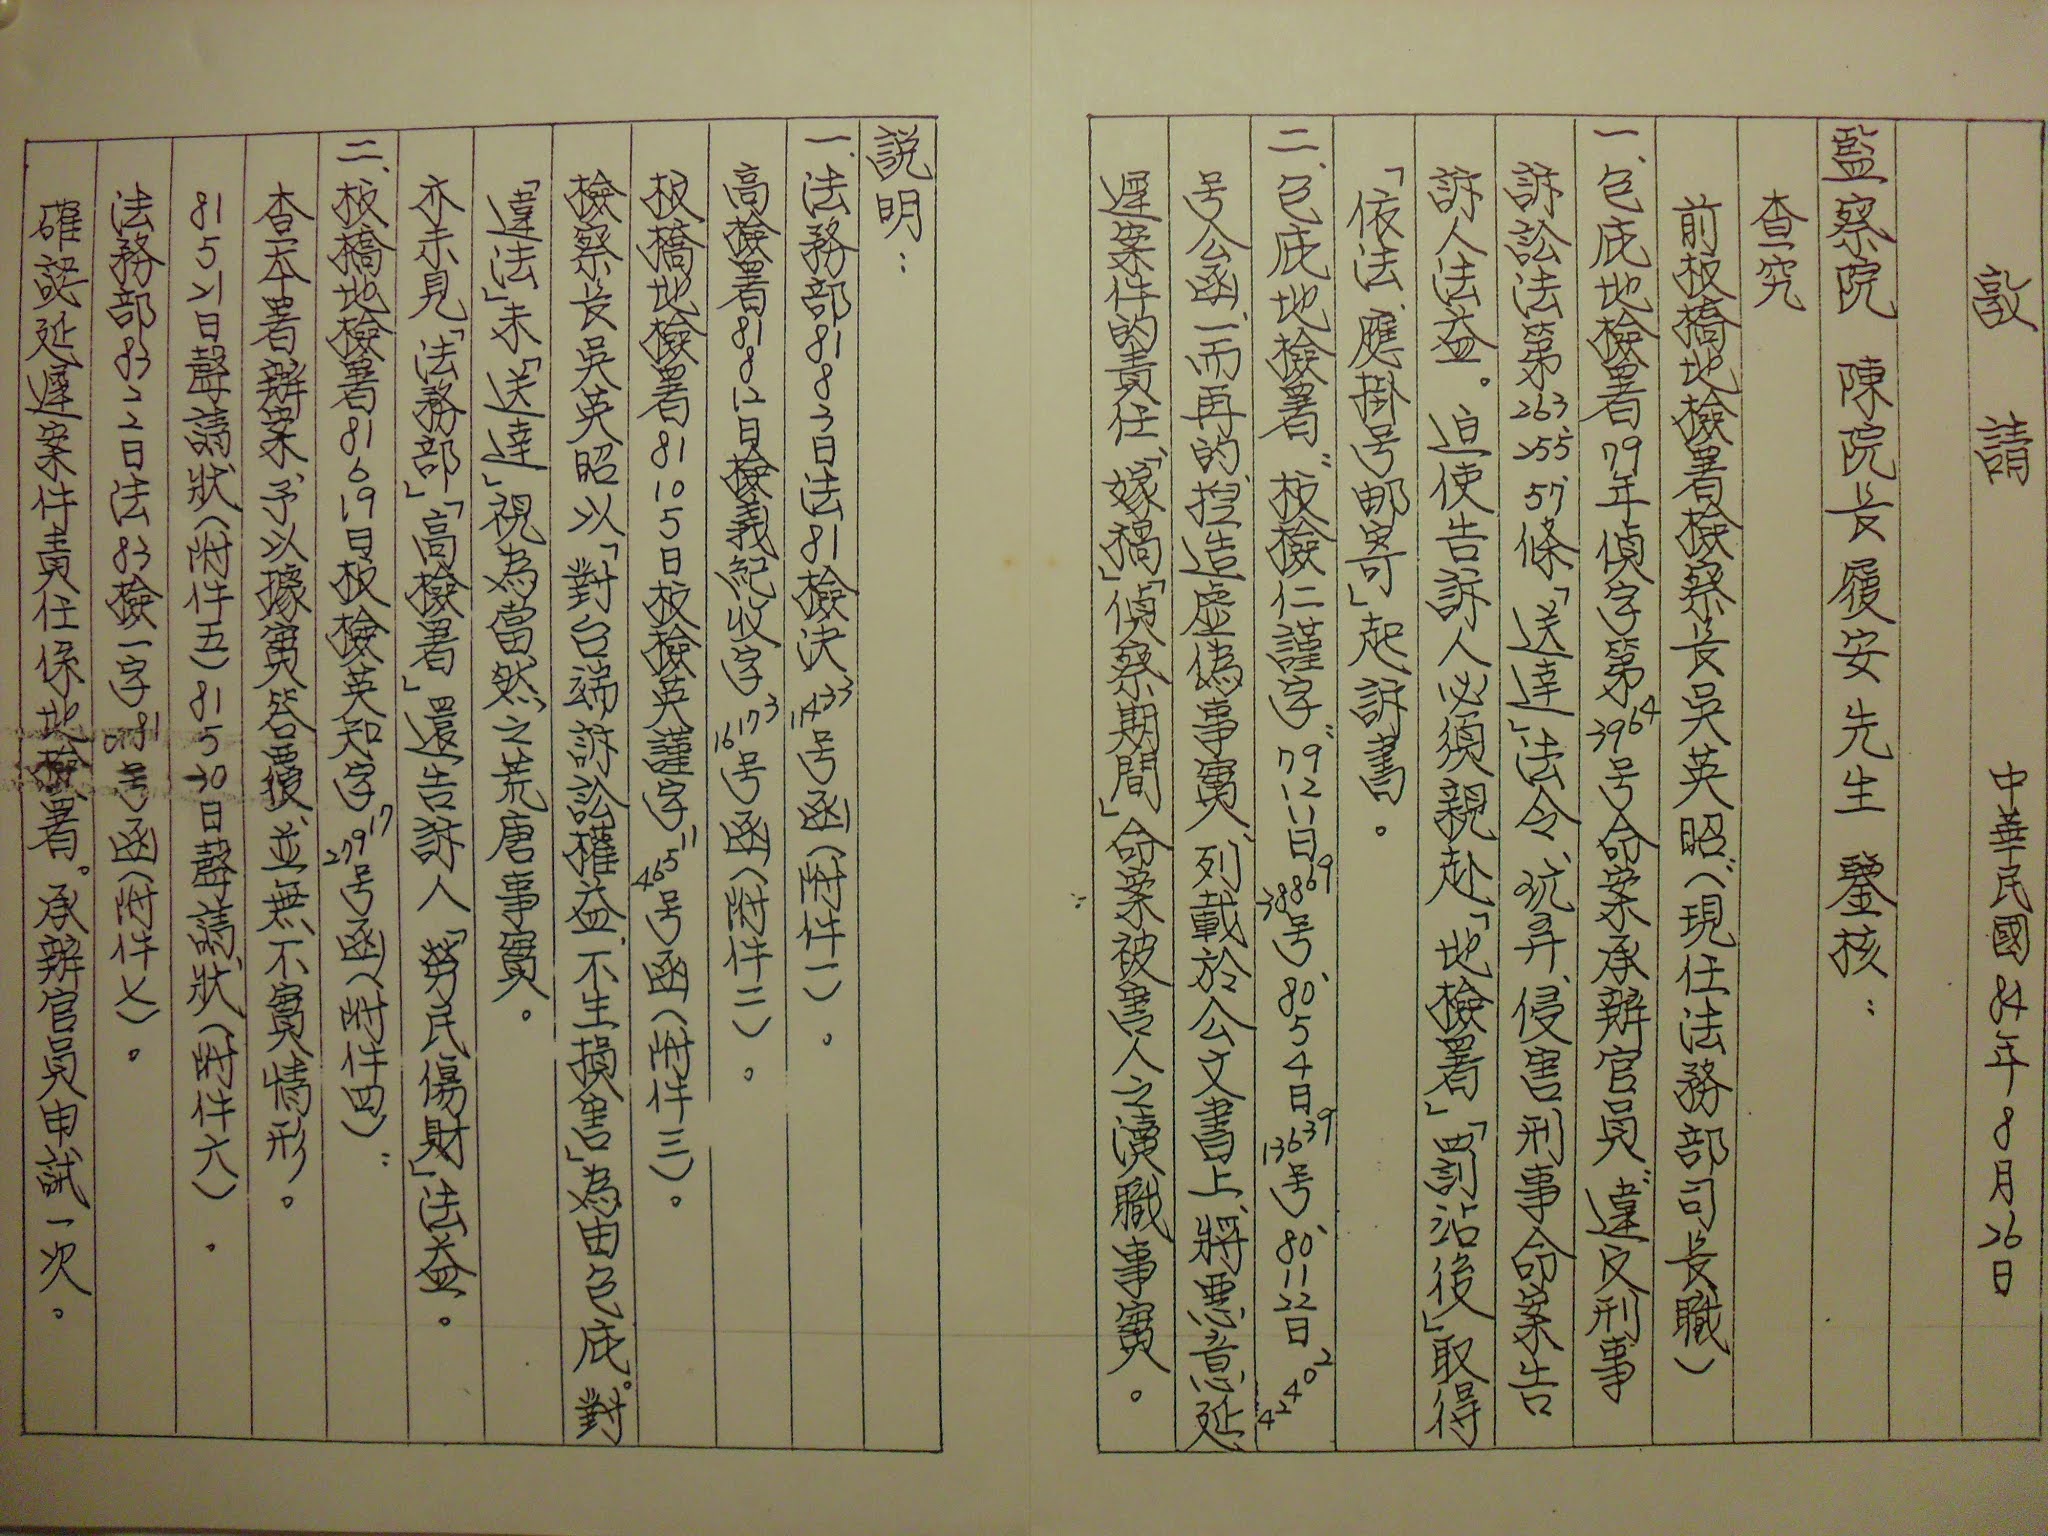 敬　請　中華民國84年8月26日
監察院　陳院長履安先生　鑒核：
查究
前板橋地檢署檢察長吳英昭、(現任法務部司長職)
一、包庇地檢署79年偵字第3964号命案承辦官員"違反刑事
訴訟法第263、255、57條「送達」法令、玩弄、侵害刑事命案告
訴人法益。迫使告訴人必須親赴「地檢署」「罰站後」取得
「依法、應掛号郵寄」起訴書。
二、包庇地檢署、板檢仁謹字"79、12、11日38869号80、5、4日13639号80、11、22日42402
号公函、一而再的、捏造虛偽事實、列載於公文書上、將惡意延
遲案件的責任、「嫁禍」「偵察期間」命案被害人之瀆職事實。
説明：
一、法務部81、8、3日法81檢決11433号函(附件一)。
高檢署81、8、12日檢義紀收字16173号函(附件二)。
板橋地檢署81、10、5日板檢英謹字46511号函(附件三)。
檢察長吳英昭以「對台端訴訟權益、不生損害」為由包庇。對
「違法」未「送達」視為當然、之荒唐事實。
亦未見「法務部」「高檢署」還告訴人「勞民傷財」法益。
二、板橋地檢署81、6、19日板檢英知字27917号函(附件四)：
查本署辦案、予以據實答覆、並無不實情形。
81、5、21日聲請狀(附件五)81、5、30日聲請狀(附件六)。
法務部83、2、2日法83檢一字号函(附件七)。
確認延遲案件責任係地檢署。承辦官員申誡一次。